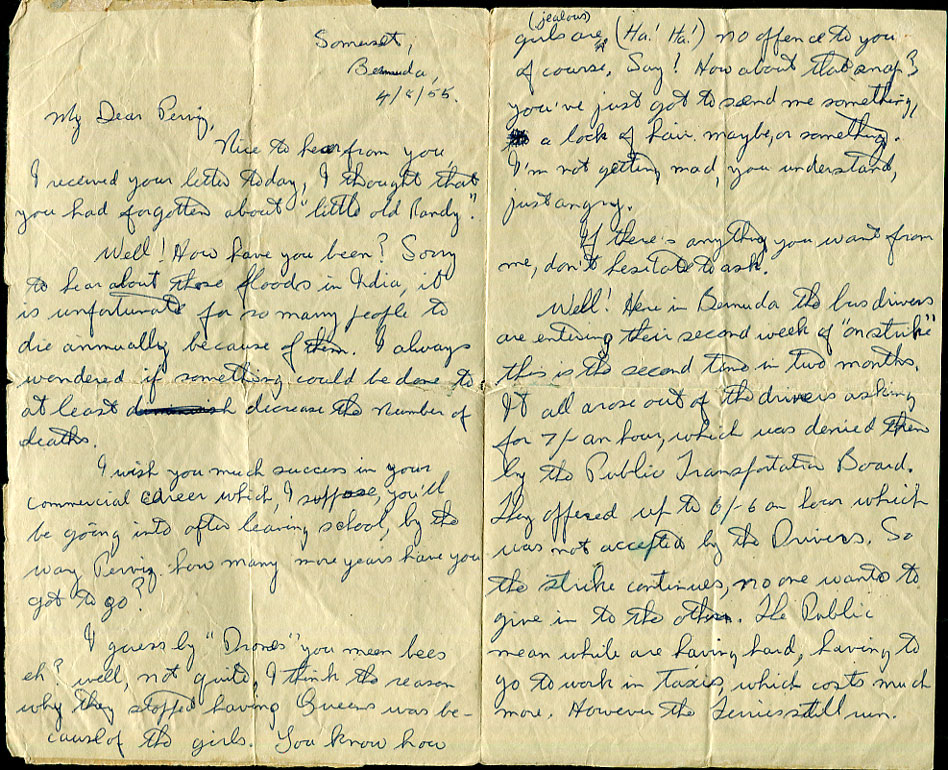 Somerset,
Bermuda,
4/8/55.
My Dear Perviz,
Nice to hear from you,
I received your letter today, I thought that
you had forgotten about "little old Randy".
Well! How have you been? Sorry
to hear about those floods in India, it
is unfortunate for so many people to
die annually because of them. I always
wondered if something could be done to
at least decrease the number of
deaths.
I wish you much success in your
commercial career which, I suppose, you'll
be going into after leaving school, by the
way Perviz how many more years have you
got to go?
I guess by "Drones" you meen bees
eh? well, not quite, I think the reason
why they stopped having Queens was be-
cause of the girls. You know how
(jealous)
girls are, (Ha! Ha!) no offence to you
of course, Say! How about that snap?
you've just got to send me something,
a lock of hair maybe, or something.
I'm not getting mad, you understand,
just angry.
If there's anything you want from
me, don't hesitate to ask.
Well! Here in Bermuda the bus drivers
are entering their second week of "on strike"
this is the second time in two months.
It all arose out of the drivers asking
for 7/- an hour, which was denied them
by the Public Transportation Board.
They offered up to 6/-6 an hour which
was not accepted by the Drivers. So
the strike continues, no one wants to
give in to the other. The Public
mean while are having hard, having to
go to work in Taxis, which costs much
more. However the Ferries still run.